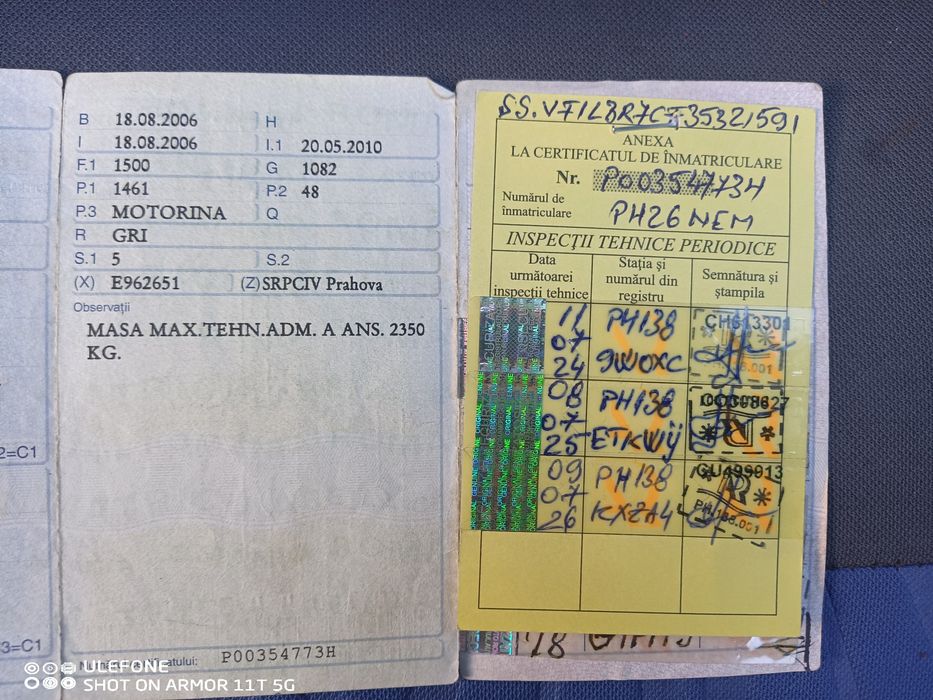 B 18.08.2006 H
I 18.08.2006 I.1 20.05.2010
F.1 1500 G 1082
P.1 1461 P.2 48
P.3 MOTORINA Q
R GRI
S.1 5 S.2
(X) E962651 (Z) SRPCIV Prahova
Observații
MASA MAX.TEHN.ADM. A ANS. 2350
KG.
P00354773H
2=C1
3=C1
ULEFONE
SHOT ON ARMOR 11T 5G
SS. VF1LBR7CF35321591
ANEXA
LA CERTIFICATUL DE ÎNMATRICULARE
Nr. P00354773H
Numărul de
înmatriculare PH26NEM
INSPECȚII TEHNICE PERIODICE
Data
următoarei
inspecții tehnice
Stația și
numărul din
registru
Semnătura și
ștampila
11 07 24 PH138 9WOXC CH613301
08 07 25 PH138 ETKWIJ
09 07 26 PH138 KXZA4 GU499913
PH.138.001
ORIGINAL GENUINE
18